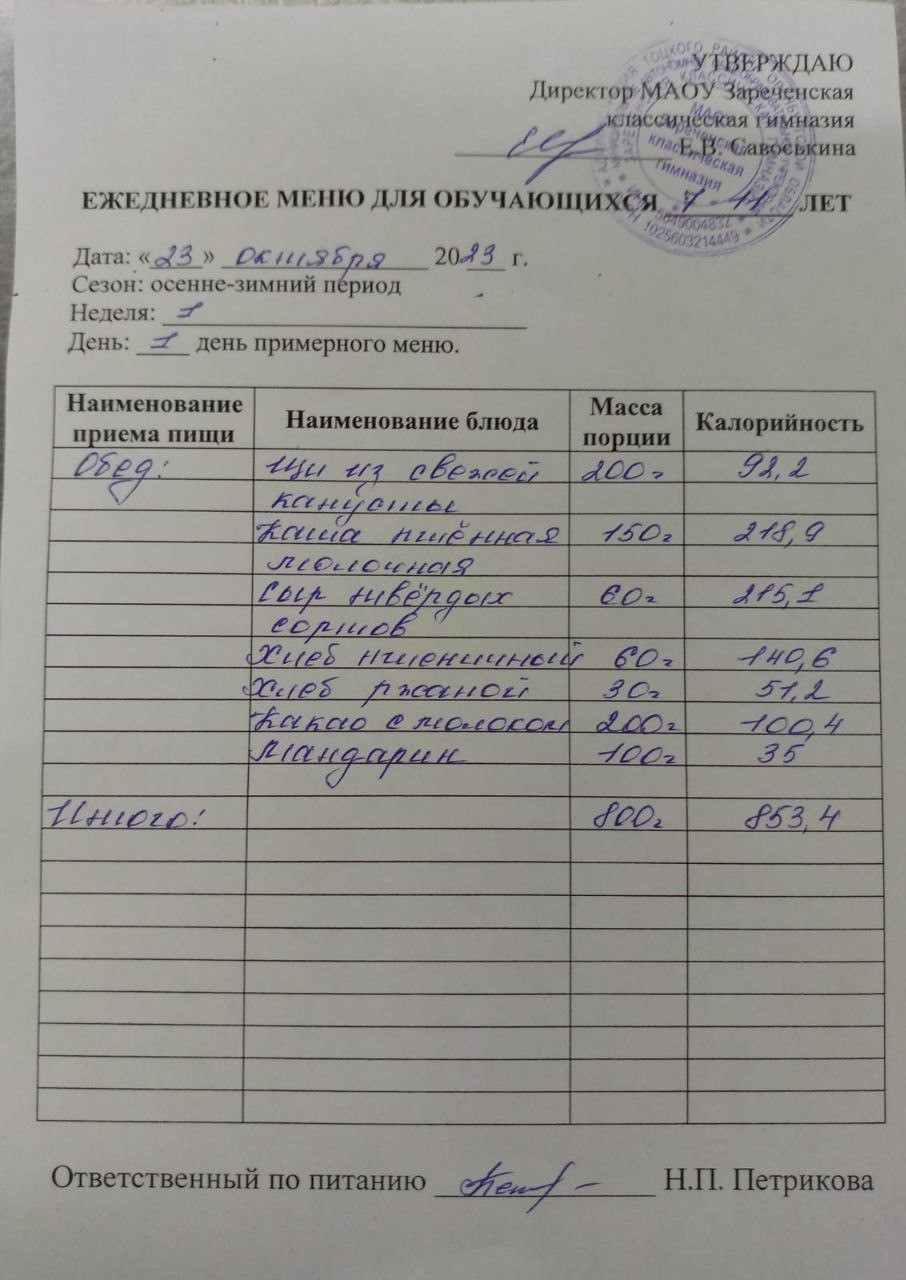 УТВЕРЖДАЮ
Директор МАОУ Зареченская
классическая гимназия
Е.В. Савоськина
МАОУ
Зареченская
классическая
гимназия
5649004832
1025603214449
ЕЖЕДНЕВНОЕ МЕНЮ ДЛЯ ОБУЧАЮЩИХСЯ 7-11 ЛЕТ
Дата: «23» октября 2023 г.
Сезон: осенне-зимний период
Неделя: 1
День: 1 день примерного меню.
Наименование приема пищи Наименование блюда Масса порции Калорийность
Обед: Щи из свежей 200г 92,2
капусты
Каша пшённая 150г 218,9
молочная
Сыр твёрдых 60г 215,1
сортов
Хлеб пшеничный 60г 140,6
Хлеб ржаной 30г 51,2
Какао с молоком 200г 100,4
Мандарин 100г 35
Итого: 800г 853,4
Ответственный по питанию Н.П. Петрикова